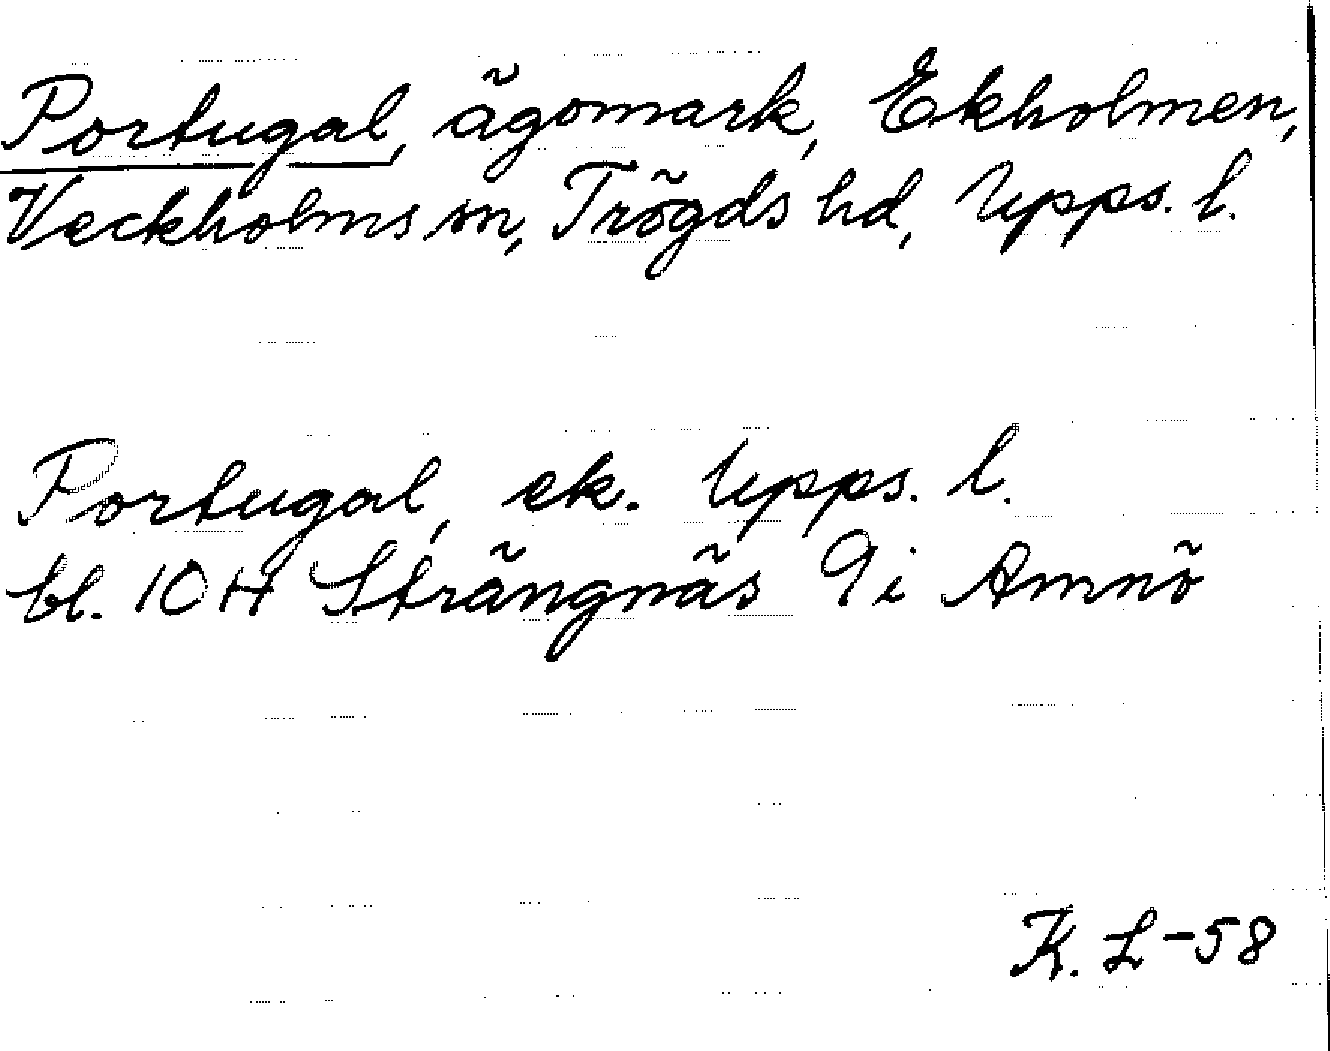 Portugal, ägomark, Ekholmen,
Veckholms sn, Trögds hd, Upps. l.
Portugal, ek. Upps. l.
bl. 10 H Strängnäs 9i Amnö
K. L-58